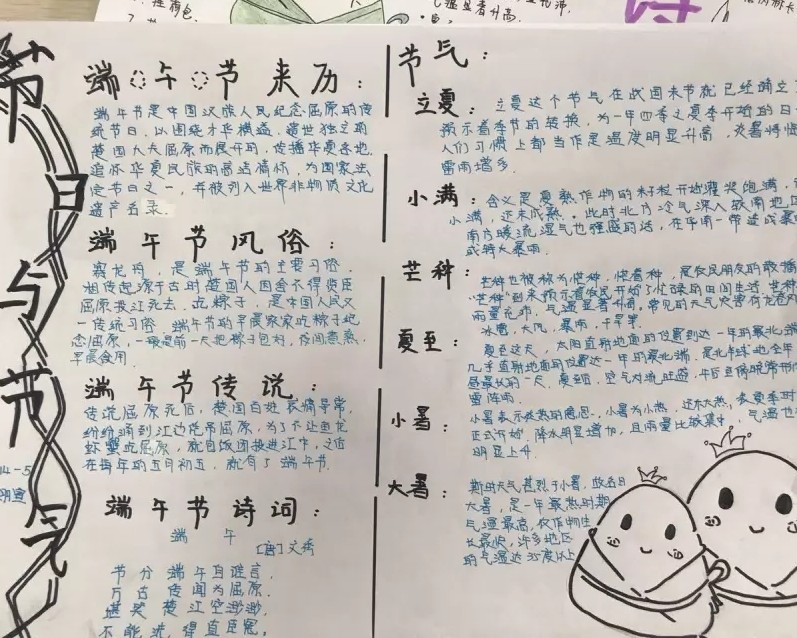 节日与节气
端午节来历：
端午节是中国汉族人民纪念屈原的传
统节日，以围绕才华横溢、遗世独立的
楚国大夫屈原而展开的，传播华夏各地，
追怀华夏民族的高洁情怀，为国家法
定节日之一，并被列入世界非物质文化
遗产名录。
端午节风俗：
赛龙舟，是端午节的主要习俗。
相传起源于古时楚国人因舍不得贤臣
屈原投江死去。吃粽子，是中国人民又
一传统习俗，端午节的早晨家家吃粽子纪
念屈原，一般是前一天把粽子包好，夜间煮熟，
早晨食用。
端午节传说：
传说屈原死后，楚国百姓哀痛异常，
纷纷涌到江边凭吊屈原，为了不让鱼龙
虾蟹吃屈原，就自饭团投进江中，之后
在每年的五月初五，就有了端午节。
端午节诗词：
端午
[唐]文秀
节分端午自谁言，
万古传闻为屈原。
堪笑楚江空渺渺，
不能洗得直臣冤。
节气：
立夏：立夏这个节气在战国末节就已经确立了
预示着季节的转换，为一年四季之夏季开始的日
人们习惯上都当作是温度明显升高，炎暑将临
雷雨增多。
小满：含义是夏熟作物的籽粒开始灌浆饱满，
小满，还未成熟。此时北方冷气深入较南地区
南方暖流湿气也强盛的话，在华南一带造成暴
或特大暴雨。
芒种：芒种也被称为忙种，忙着种，是农民朋友的散播
“芒种”到来预示着农民开始了忙碌的田间生活。芒种
雨量充沛，气温显著升高，常见的天气灾害有龙卷风
冰雹，大风，暴雨，干旱等。
夏至：夏至这天，太阳直射地面的位置到达一年的最北端
几乎直射地面的位置到达一年的最北端，是北半球地全年
昼最长的一天，夏至后，空气对流旺盛，午后至傍晚常形
雷阵雨。
小暑：小暑表示炎热的意思，小暑为小热，还不大热，炎夏季时
正式开始，降水明显增加，且雨量比较集中，气温也
明显上升
大暑：斯时天气甚烈于小暑，故名曰
大暑，是一年最热时期
气温最高，农作物生
长最快，许多地区
的气温达35度以上
4-5
气温显著升高.